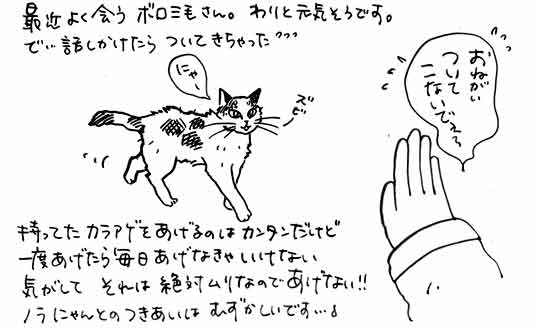 最近よく会う ボロミ毛さん。わりと元気そうです。
でい話しかけたら ついてきちゃった〃〃
にゃ
ズビー
おねがい
ついて
こないでぇぇ
持ってた カラアゲをあげるのは カンタンだけど
一度あげたら 毎日 あげなきゃ いけない
気がして それは 絶対ムリなので あげない!!
ノラにゃんとの つきあいは むずかしいです…。